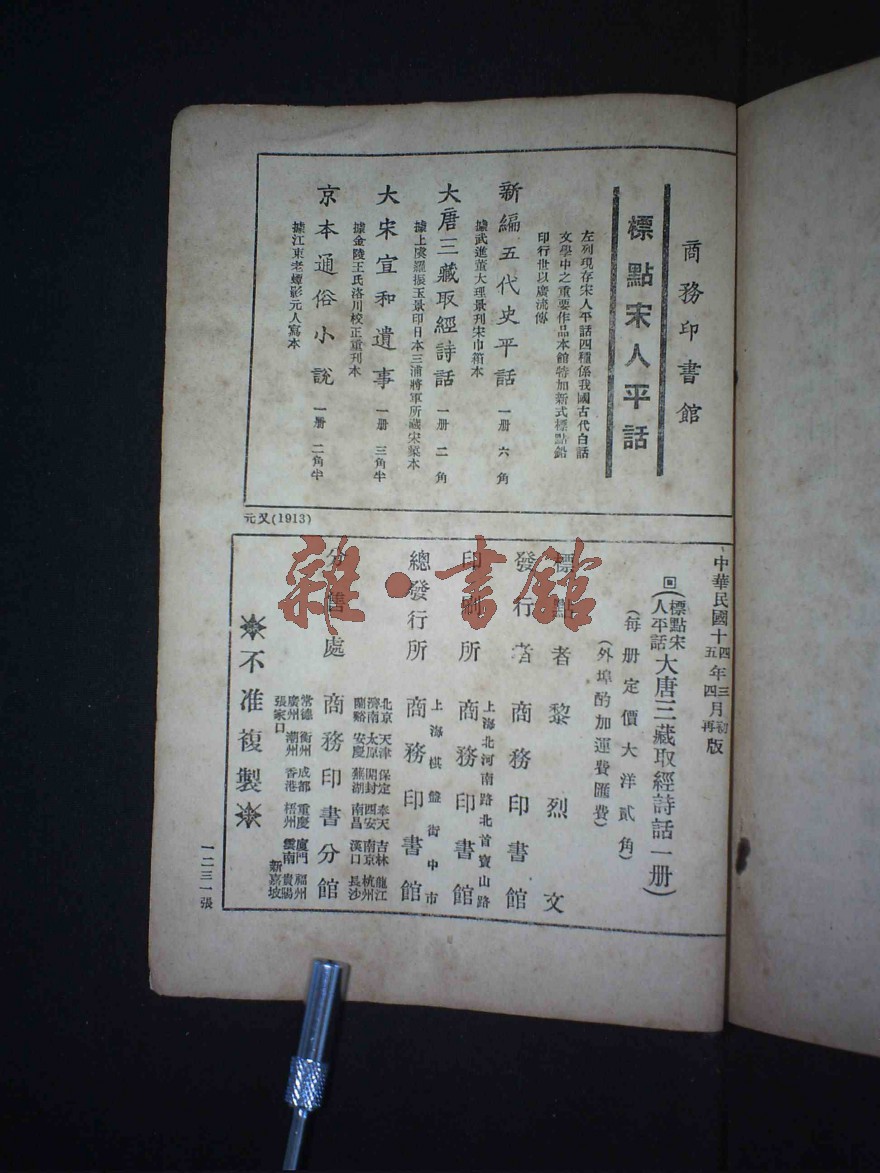 商務印書館
標點宋人平話
左列現存宋人平話四種係我國古代白話
文學中之重要作品本館特加新式標點鉛
印行世以廣流傳
新編五代史平話 一册 六角
據武進董大理景刊宋巾箱本
大唐三藏取經詩話 一册 二角
據上虞羅振玉景印日本三浦將軍所藏宋槧本
大宋宣和遺事 一册 三角半
據金陵王氏洛川校正重刊本
京本通俗小說 一册 二角半
據江東老蟫影元人寫本
元又(1913)
中華民國十四年三月初版
五 四 再
回(標點宋人平話大唐三藏取經詩話一册)
(每册定價大洋貳角)
(外埠酌加運費匯費)
標點者 黎烈文
發行者 商務印書館
上海北河南路北首寶山路
印刷所 商務印書館
上海棋盤街中市
總發行所 商務印書館
北京 天津 保定 奉天 吉林 龍江
濟南 太原 開封 西安 南京 杭州
蘭谿 安慶 蕪湖 南昌 漢口 長沙
分售處 商務印書分館
常德 衡州 成都 重慶 廈門 福州
廣州 潮州 香港 梧州 雲南 貴陽
張家口 新嘉坡
不准複製
一二三一張
雜·書館